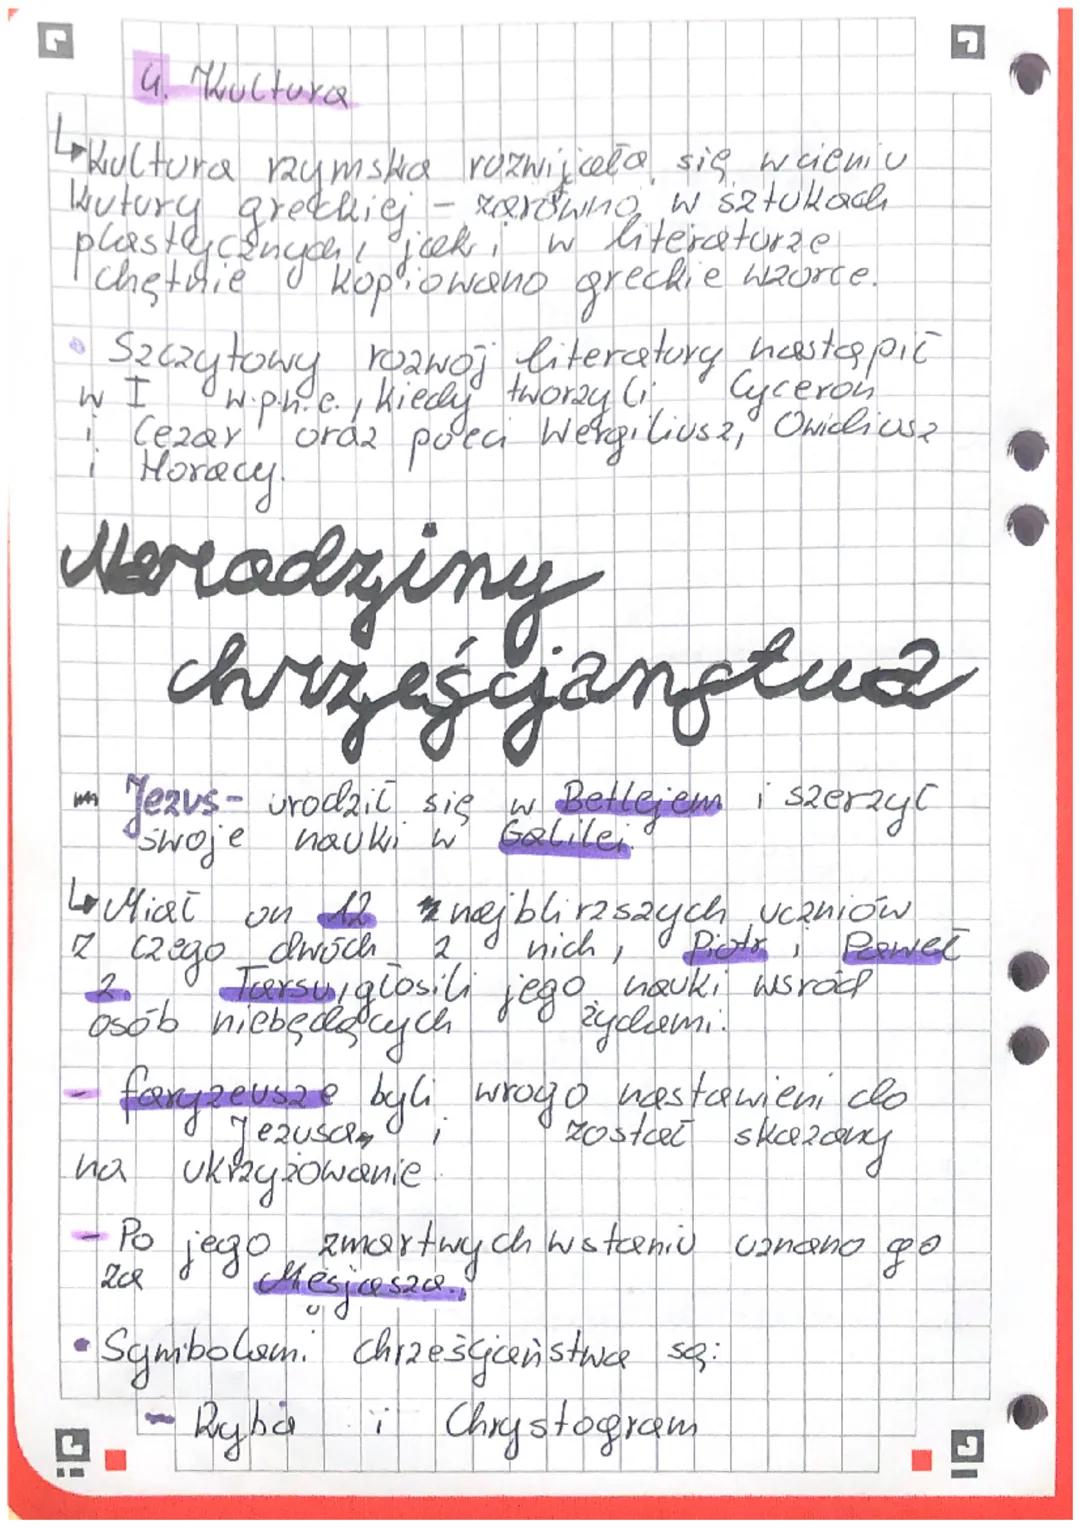 4. Kultura
↳Kultura rzymska rozwijała się w cieniu
kutury greckiej - zarówno w sztukach
plastycznych, jak i w literaturze
chętnie kopiowano greckie wzorce.
• Szczytowy rozwój literatury nastąpił
w I w.p.n.e., kiedy tworzyli Cyceron
i Cezar oraz poeci Wergiliusz, Owidiusz
i Horacy.
Narodziny
chrześcijaństwa
Jezus - urodził się w Betlejem i szerzył
swoje nauki w Galilei.
↳Miał on 12 najblirzszych uczniów
z czego dwóch z nich, Piotr i Paweł
z Tarsu, głosili jego nauki wsród
osób niebędących żydami.
- faryzeusze byli wrogo nastawieni do
Jezusa i został skazany
na ukrzyżowanie.
- Po jego zmartwychwstaniu uznano go
za Mesjasza.
• Symbolami chrześcijaństwa są:
- Ryba i Chrystogram